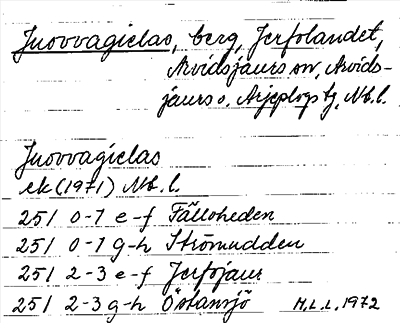 Juovvagielas, berg, Jerfolandet,
Arvidsjaurs sn, Arvids-
jaurs o. Arjeplogs tg, Nb. l.
Juovvagielas
ek (1971) Nb. l.
25 I 0-1 e-f Fälloheden
25 I 0-1 g-h Strömudden
25 I 2-3 e-f Jerfojaur
25 I 2-3 g-h Östansjö H.L.L. 1972